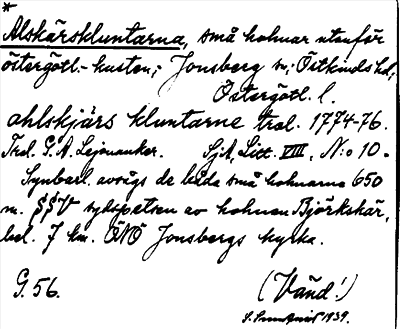 *
Alskärskluntarna, små holmar utanför
östergötl.-kusten; Jonsberg sn; Östkinds hd,
Östergötl. l.
ahlskjärs kluntarne tral. 1774-76.
Trol. G. A. Lejonanker. SjA, Litt. VIII, N:o 10.
Synbarl. avsågs de båda små holmarna 650
m. SSV sydspetsen av holmen Björkskär,
bel. 7 km. ÖNÖ Jonsbergs kyrka.
G. 56. (Vänd!)
1939.